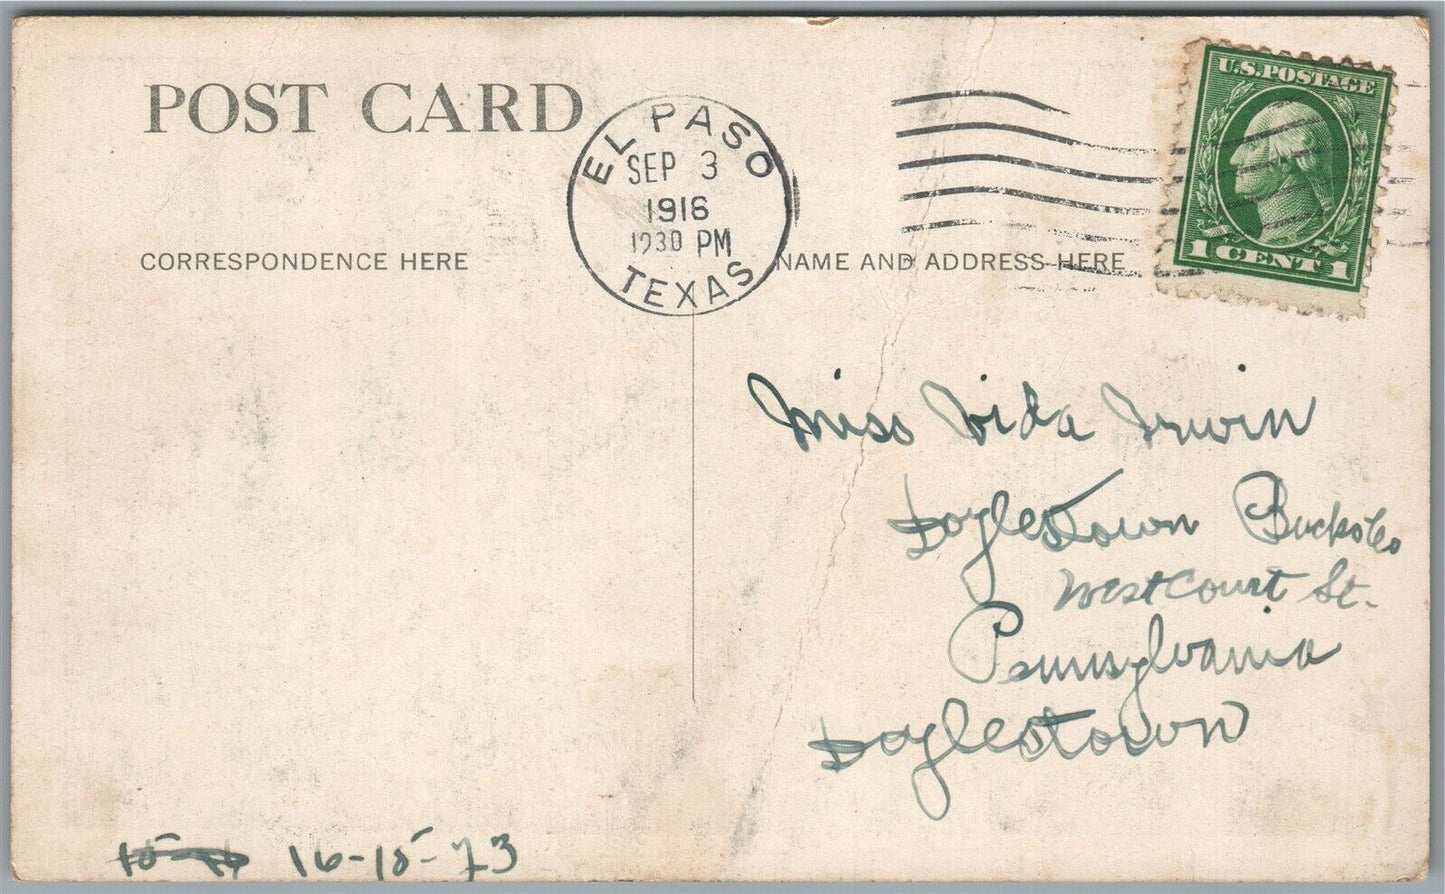 POST CARD
EL PASO
SEP 3
1916
1230 PM
TEXAS
U.S. POSTAGE
1 CENT 1
CORRESPONDENCE HERE
NAME AND ADDRESS HERE
Miss Vida Irwin
Doylestown Bucks Co
West Court St.
Pennsylvania
Doylestown
16-15-73